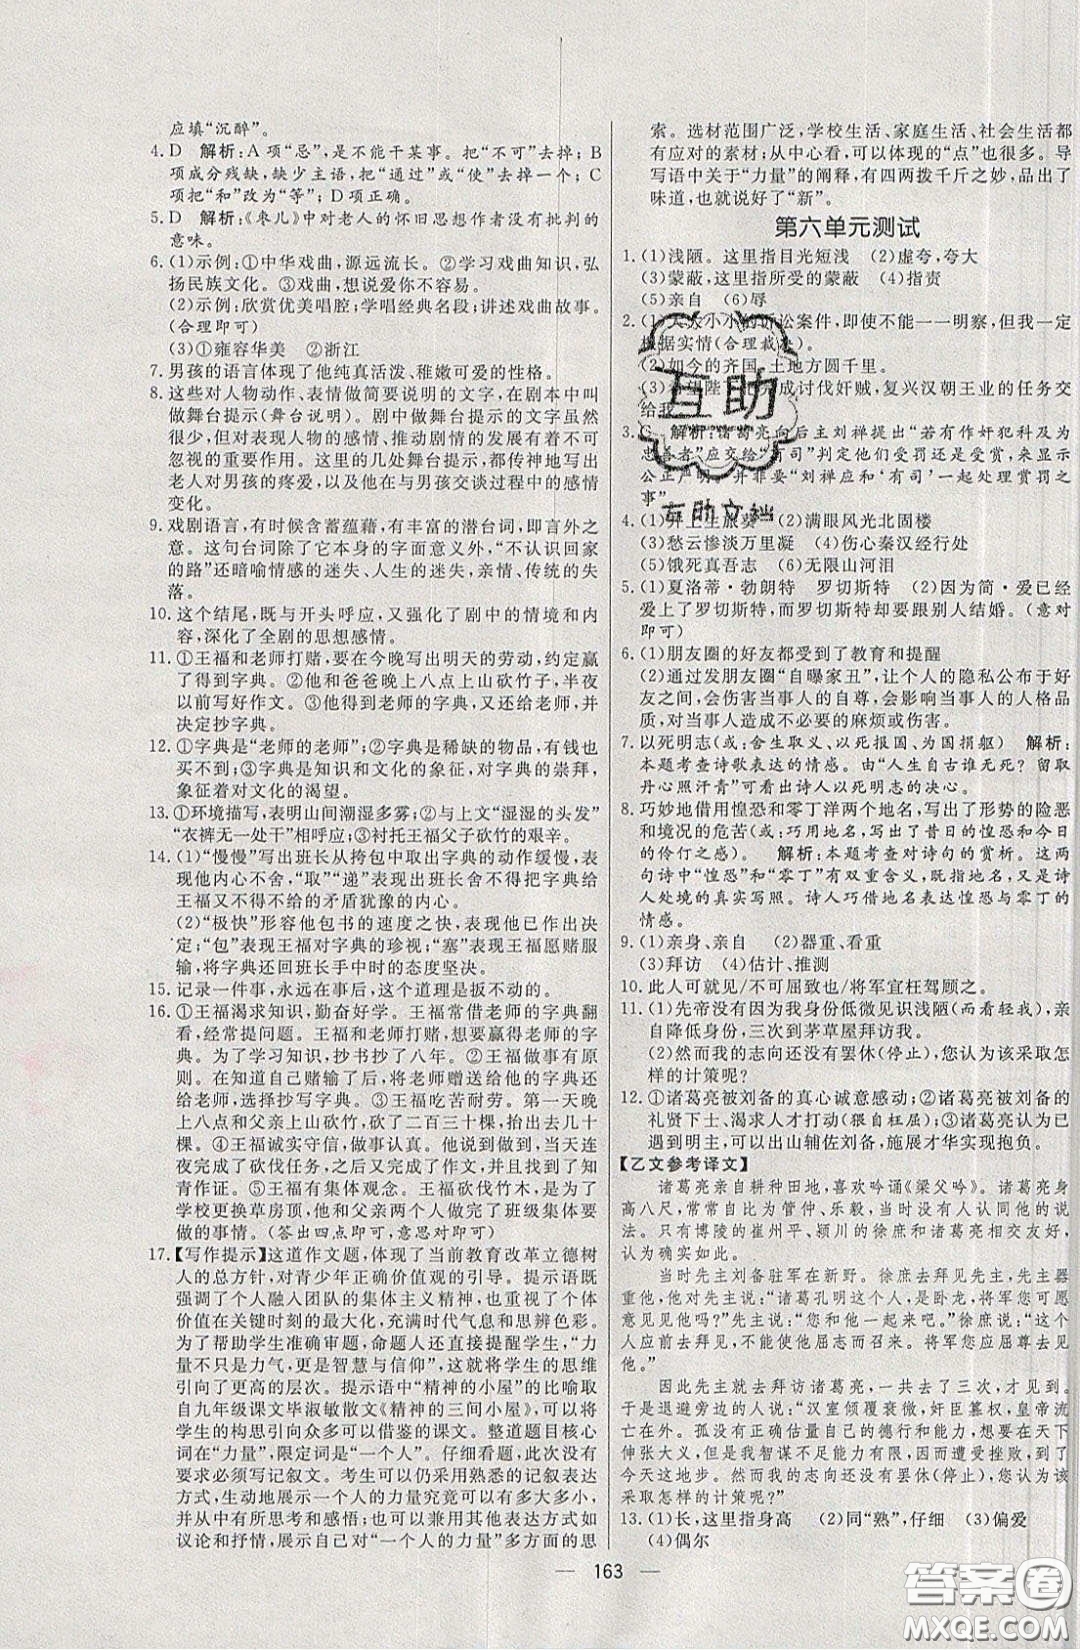 应填“沉醉”。
4. D 解析:A 项“忌”,是不能干某事。把“不可”去掉;B
项成分残缺,缺少主语,把“通过”或“使”去掉;C
项把“和”改为“等”;D 项正确。
5. D 解析:《枣儿》中对老人的怀旧思想作者没有批判的
意味。
6. (1)示例:①中华戏曲,源远流长。②学习戏曲知识,弘
扬民族文化。③戏曲,想说爱你不容易。
(2)示例:欣赏优美唱腔;学唱经典名段;讲述戏曲故事。
(合理即可)
(3)①雍容华美 ②浙江
7. 男孩的语言体现了他纯真活泼、稚嫩可爱的性格。
8. 这些对人物动作、表情做简要说明的文字,在剧本中叫
做舞台提示(舞台说明)。剧中舞台提示的文字虽然
很少,但对表现人物的感情、推动剧情的发展有着不可
忽视的重要作用。这里的几处舞台提示,都传神地写出
老人对男孩的疼爱,以及与男孩交谈过程中的感情
变化。
9. 戏剧语言,有时候含蓄蕴藉,有丰富的潜台词,即言外之
意。这句台词除了它本来的字面意义外,“不认识回家
的路”还暗喻情感的迷失、人生的迷失,亲情、传统的失
落。
10. 这个结尾,既与开头呼应,又强化了剧中的情境和内
容,深化了全剧的思想感情。
11. ①王福和老师打赌,要在今晚写出明天的劳动,约定赢
了得到字典。②他和爸爸晚上八点上山砍竹子,半夜
以前写好作文。③他得到老师的字典,又还给老师,并
决定抄字典。
12. ①字典是“老师的老师”;②字典是稀缺的物品,有钱也
买不到;③字典是知识和文化的象征,对字典的崇拜,
象征着对文化的渴望。
13. ①环境描写,表明山间潮湿多雾;②与上文“湿湿的头发”
“衣裤无一处干”相呼应;③衬托王福父子砍竹的艰辛。
14. (1)“慢慢”写出班长从挎包中取出字典的动作缓慢,表
现他内心不舍,“取”“递”表现出班长舍不得把字典给
王福又不得不给的矛盾犹豫的内心。
(2)“极快”形容他包书的速度之快,表现他已作出决
定;“包”表现王福对字典的珍视;“塞”表现王福愿赌服
输,将字典还回班长手中时的态度坚决。
15. 记录一件事,永远在事后,这个道理是扳不动的。
16. ①王福渴求知识,勤奋好学。王福常借老师的字典翻
看,经常提问题。王福和老师打赌,想要赢得老师的字
典。为了学习知识,抄书抄了八年。②王福做事有原
则。在以为自己赌输了后,把老师赠送给他的字典还
给老师,选择抄字典。③王福吃苦耐劳。第一天晚
上八点和父亲上山砍竹,砍了二百三十棵,抬出去几十
棵。④王福诚实守信,做事认真。说到做到,当天连
夜完成了砍伐任务,并且认真地完成了作文,还请支书
作证。⑤王福有集体观念。王福砍伐竹木,是为了给
学校更换草房顶,他和父亲两个人做完了班级集体要
做的事情。(答出四点即可,意思对即可)
17. 【写作提示】这道作文题,体现了当前教育改革立德树
人的总方针,对青少年正确价值观的引导。提示语既
强调了个人融入团队的集体主义精神,也重视了个人
价值在关键时刻的最大化,充满时代气息和思辨色彩。
为了帮助学生准确审题,命题人还直接提醒学生,“力
量不只是力气,更是智慧与信仰”,这就将学生的思维
引向了更高的层次。提示语中“精神的小屋”的比喻取
自九年级课文毕淑敏散文《精神的三间小屋》,可以将
学生的构思引向众多可以借鉴的课文。整道题目核心
词在“力量”,限定词是“一个人”。仔细看题,此次没有
要求必须写记叙文。考生可以仍采用熟悉的记叙表达
方式,生动地展示一个人的力量究竟可以有多大多小,
并从中有所思考和感悟;也可以采用其他表达方式如
议论和抒情,展示自己对“一个人的力量”多方面的思
索。选材范围广泛,学校生活、家庭生活、社会生活都
有应对的素材;从中心看,可以体现的“点”也很多。导
写语中关于“力量”的阐释,有四两拨千斤之妙,品出了
味道,也就说好了“新”。
第六单元测试
1. (1)浅陋。这里指目光短浅 (2)虚夸、夸大
(3)蒙蔽,这里指所受的蒙蔽 (4)指责
(5)亲自 (6)辱
2. (1)大大小小的诉讼案件,即使不能一一明察,但我一定
根据实情(合理裁决)。
(2)如今的齐国,土地方圆千里。
(3)希望陛下 成讨伐奸贼,复兴汉朝王业的任务交
给我
3. C 解析:诸葛亮向后主刘禅提出“若有作奸犯科及为
忠善者”应交给“有司”判定他们受罚还是受赏,来显示
公正严明,并非要“刘禅应和‘有司’一起处理赏罚之
事”
4. (1)井上生旅葵 (2)满眼风光北固楼
(3)愁云惨淡万里凝 (4)伤心秦汉经行处
(5)饿死真吾志 (6)无限山河泪
5. (1)夏洛蒂·勃朗特 罗切斯特 (2)因为简·爱已经
爱上了罗切斯特,而罗切斯特却要跟别人结婚。(意对
即可)
6. (1)朋友圈的好友都受到了教育和提醒
(2)通过发朋友圈“自曝家丑”,让个人的隐私公布于好
友之间,会伤害当事人的自尊,会影响当事人的人格品
质,对当事人造成不必要的麻烦或伤害。
7. 以死明志(或:舍生取义、以身报国、为国捐躯) 解析:
本题考查诗歌表达的情感。由“人生自古谁无死? 留取
丹心照汗青”可以看出诗人以死明志的决心。
8. 巧妙地借用惶恐和零丁洋两个地名,写出了形势的险恶
和境况的危苦(或:巧用地名,写出了昔日的惶恐和今日
的伶仃之感)。 解析:本题考查对诗句的赏析。这两
句诗中“惶恐”和“零丁”有双重含义,既指地名,又是诗
人处境的真实写照。诗人巧借地名表达惶恐与零丁的
情感。
9. (1)亲身、亲自 (2)器重、看重
(3)拜访 (4)估计、推测
10. 此人可就见/不可屈致也/将军宜枉驾顾之。
11. (1)先帝没有因为我身份低微见识浅陋(而看轻我),亲
自降低身份,三次到茅草屋拜访我。
(2)然而我的志向还没有罢休(停止),您认为该采取怎
样的计策呢?
12. ①诸葛亮被刘备的真心诚意感动;②诸葛亮被刘备的
礼贤下士、渴求人才打动(猥自枉屈);③诸葛亮认为已
遇到明主,可以出山辅佐刘备,施展才华实现抱负。
【乙文参考译文】
诸葛亮亲自耕种田地,喜欢吟诵《梁父吟》。诸葛亮身
高八尺,常常把自己比为管仲、乐毅,当时的人不承认他。
只有博陵的崔州平、颍川的徐庶和诸葛亮相交友好,
认为确实如此。
当时先主刘备驻军在新野。徐庶去拜见先主,先主器
重他,他对先主说:“诸葛孔明这个人,是卧龙,将军您可
愿意见他吗?”先主说:“您和他一起来吧。”徐庶说:“这个
人应前去拜见,不能使他屈志而召来。将军您应当去见
他。”
因此先主就去拜访诸葛亮,一共去了三次,才见到。
于是退避旁边的人说:“汉室倾覆衰微,奸臣篡权,皇帝流
亡在外。我没有正确估量自己的德行和力量,想要在天下
伸张大义,但是我智谋不足能力有限,因而遭受挫败,到了
今天这地步。然而我的志向还没有罢休(停止),您认为该
采取怎样的计策呢?”
13. (1)长,这里指身高 (2)同“熟”,仔细 (3)偏爱
(4)偶尔
163
互助
互助文档
答案圈
MXQE.COM